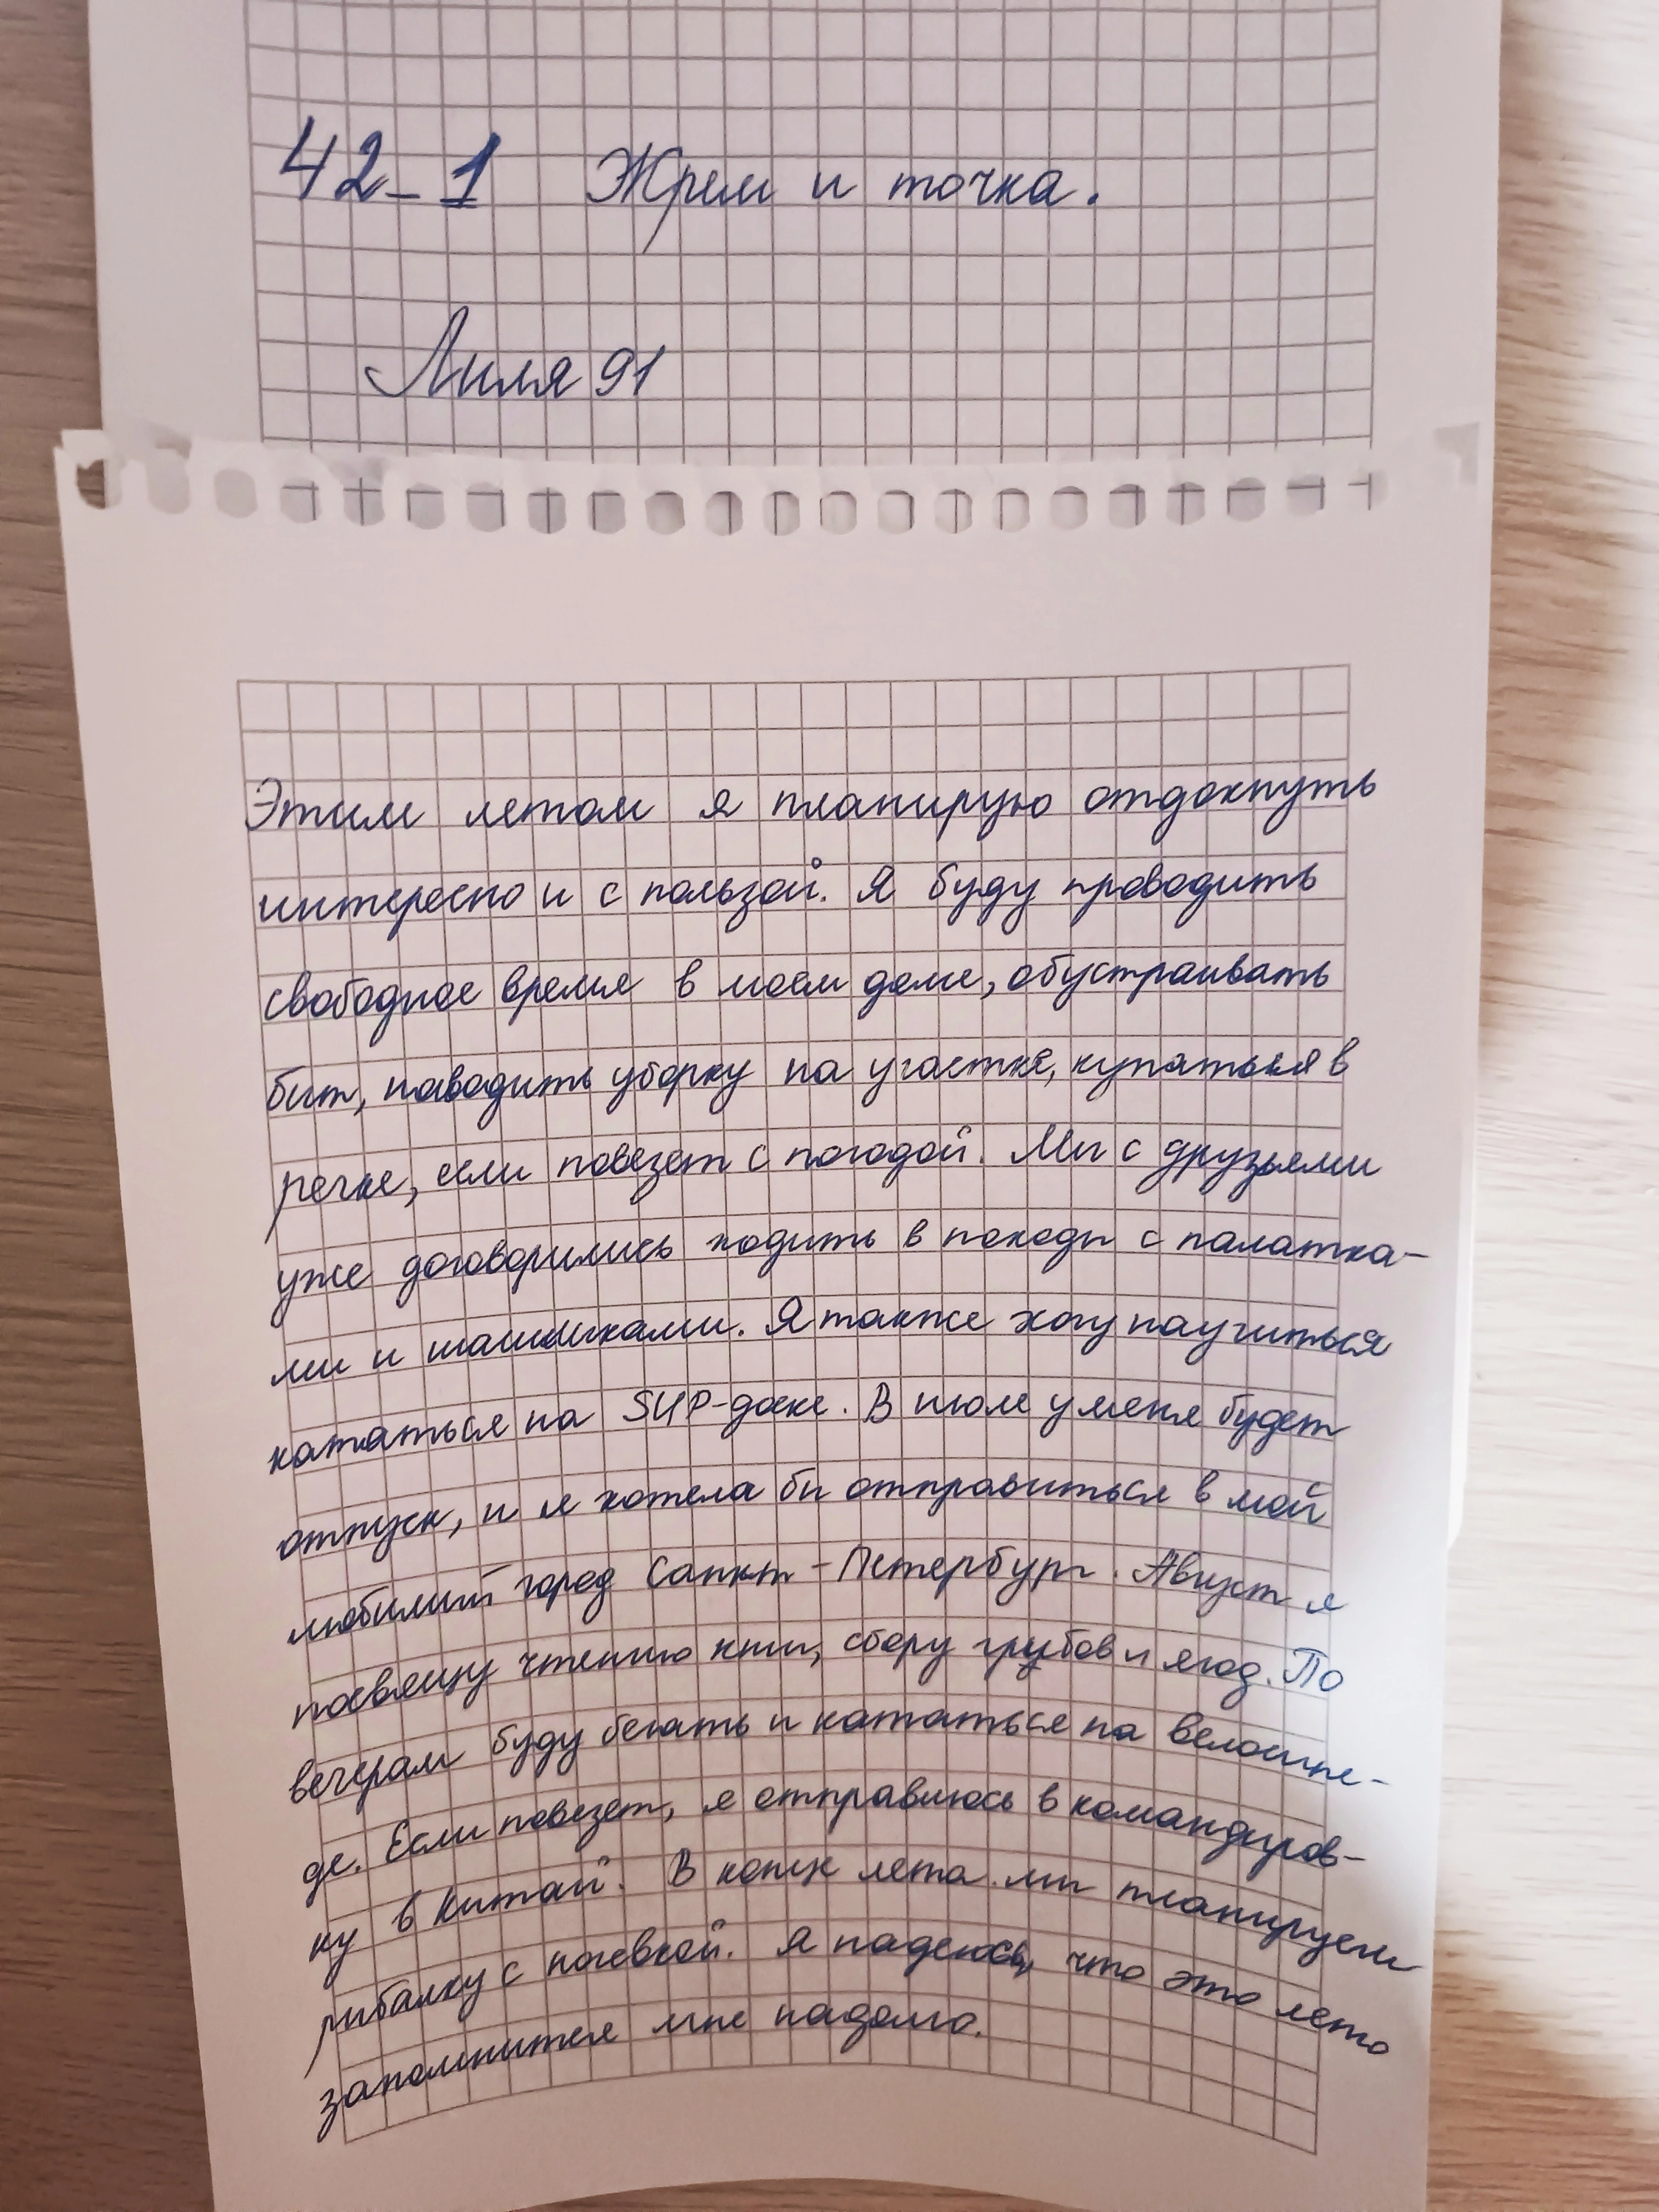 42-1 Жрем и точка.
Лиля 91
Этим летом я планирую отдохнуть
интересно и с пользой. Я буду проводить
свободное время в моем доме, обустраивать
быт, наводить уборку на участке, купаться в
речке, если повезет с погодой. Мы с друзьями
уже договорились ходить в походы с палатка-
ми и шашлыками. Я также хочу научиться
кататься на SUP-доске. В июле у меня будет
отпуск, и я хотела бы отправиться в мой
любимый город Санкт-Петербург. Август я
посвящу чтению книг, сбору грибов и ягод. По
вечерам буду бегать и кататься на велосипе-
де. Если повезет, я отправлюсь в командиров-
ку в Китай. В конце лета мы планируем
рыбалку с ночевкой. Я надеюсь, что это лето
запомнится мне надолго.